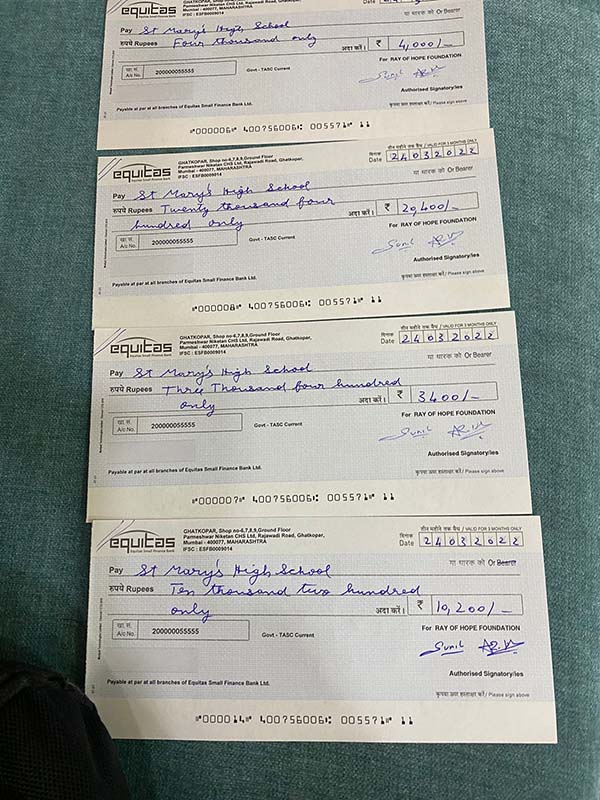 equitas
Equitas Small Finance Bank
Parmeshwar Niketan CHS Ltd, Rajawadi Road, Ghatkopar,
Mumbai - 400077, MAHARASHTRA
IFSC : ESFB0009014
Pay St Mary's High School
या धारक को Or Bearer
रुपये Rupees Four thousand only
अदा करें। ₹ 4,000/-
खा.सं. A/c No. 200000055555
Govt - TASC Current
For RAY OF HOPE FOUNDATION
Sunil
Authorised Signatory/ies
Payable at par at all branches of Equitas Small Finance Bank Ltd.
कृपया ऊपर हस्ताक्षर करें/ Please sign above
⑈000006⑈ 400756006⑆ 005571⑈ 11
equitas
Equitas Small Finance Bank
GHATKOPAR, Shop no-6,7,8,9,Ground Floor
Parmeshwar Niketan CHS Ltd, Rajawadi Road, Ghatkopar,
Mumbai - 400077, MAHARASHTRA
IFSC : ESFB0009014
तीन महीने तक वैध / VALID FOR 3 MONTHS ONLY
दिनांक Date 24032022
Pay St Mary's High School
या धारक को Or Bearer
रुपये Rupees Twenty thousand four
अदा करें। ₹ 20,400/-
hundred only
खा.सं. A/c No. 200000055555
Govt - TASC Current
For RAY OF HOPE FOUNDATION
Sunil
Authorised Signatory/ies
Payable at par at all branches of Equitas Small Finance Bank Ltd.
कृपया ऊपर हस्ताक्षर करें/ Please sign above
⑈000008⑈ 400756006⑆ 005571⑈ 11
equitas
Equitas Small Finance Bank
GHATKOPAR, Shop no-6,7,8,9,Ground Floor
Parmeshwar Niketan CHS Ltd, Rajawadi Road, Ghatkopar,
Mumbai - 400077, MAHARASHTRA
IFSC : ESFB0009014
तीन महीने तक वैध / VALID FOR 3 MONTHS ONLY
दिनांक Date 24032022
Pay St Mary's High School
या धारक को Or Bearer
रुपये Rupees Three Thousand four hundred
अदा करें। ₹ 3400/-
only
खा.सं. A/c No. 200000055555
Govt - TASC Current
For RAY OF HOPE FOUNDATION
Sunil
Authorised Signatory/ies
Payable at par at all branches of Equitas Small Finance Bank Ltd.
कृपया ऊपर हस्ताक्षर करें/ Please sign above
⑈000007⑈ 400756006⑆ 005571⑈ 11
equitas
Equitas Small Finance Bank
GHATKOPAR, Shop no-6,7,8,9,Ground Floor
Parmeshwar Niketan CHS Ltd, Rajawadi Road, Ghatkopar,
Mumbai - 400077, MAHARASHTRA
IFSC : ESFB0009014
तीन महीने तक वैध / VALID FOR 3 MONTHS ONLY
दिनांक Date 24032022
Pay St Mary's High School
या धारक को Or Bearer
रुपये Rupees Ten thousand two hundred
अदा करें। ₹ 10,200/-
only
खा.सं. A/c No. 200000055555
Govt - TASC Current
For RAY OF HOPE FOUNDATION
Sunil
Authorised Signatory/ies
Payable at par at all branches of Equitas Small Finance Bank Ltd.
कृपया ऊपर हस्ताक्षर करें/ Please sign above
⑈000014⑈ 400756006⑆ 005571⑈ 11